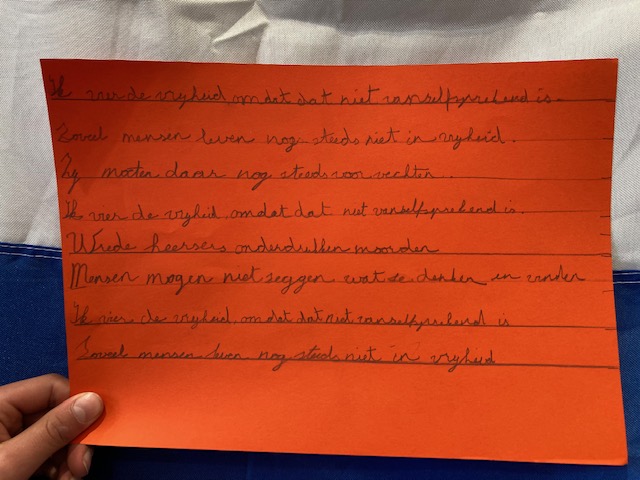 Ik vier de vryheid omdat dat niet vanselfsprekend is.
Zoveel mensen leven nog steeds niet in vryheid.
Zy moeten daar nog steeds voor vechten.
Ik vier de vryheid omdat dat niet vanselfsprekend is.
Wrede heersers onderdrukken moorden
Mensen mogen niet zeggen wat ze denken en vinden
Ik vier de vryheid omdat dat niet vanselfsprekend is
Zoveel mensen leven nog steeds niet in vryheid